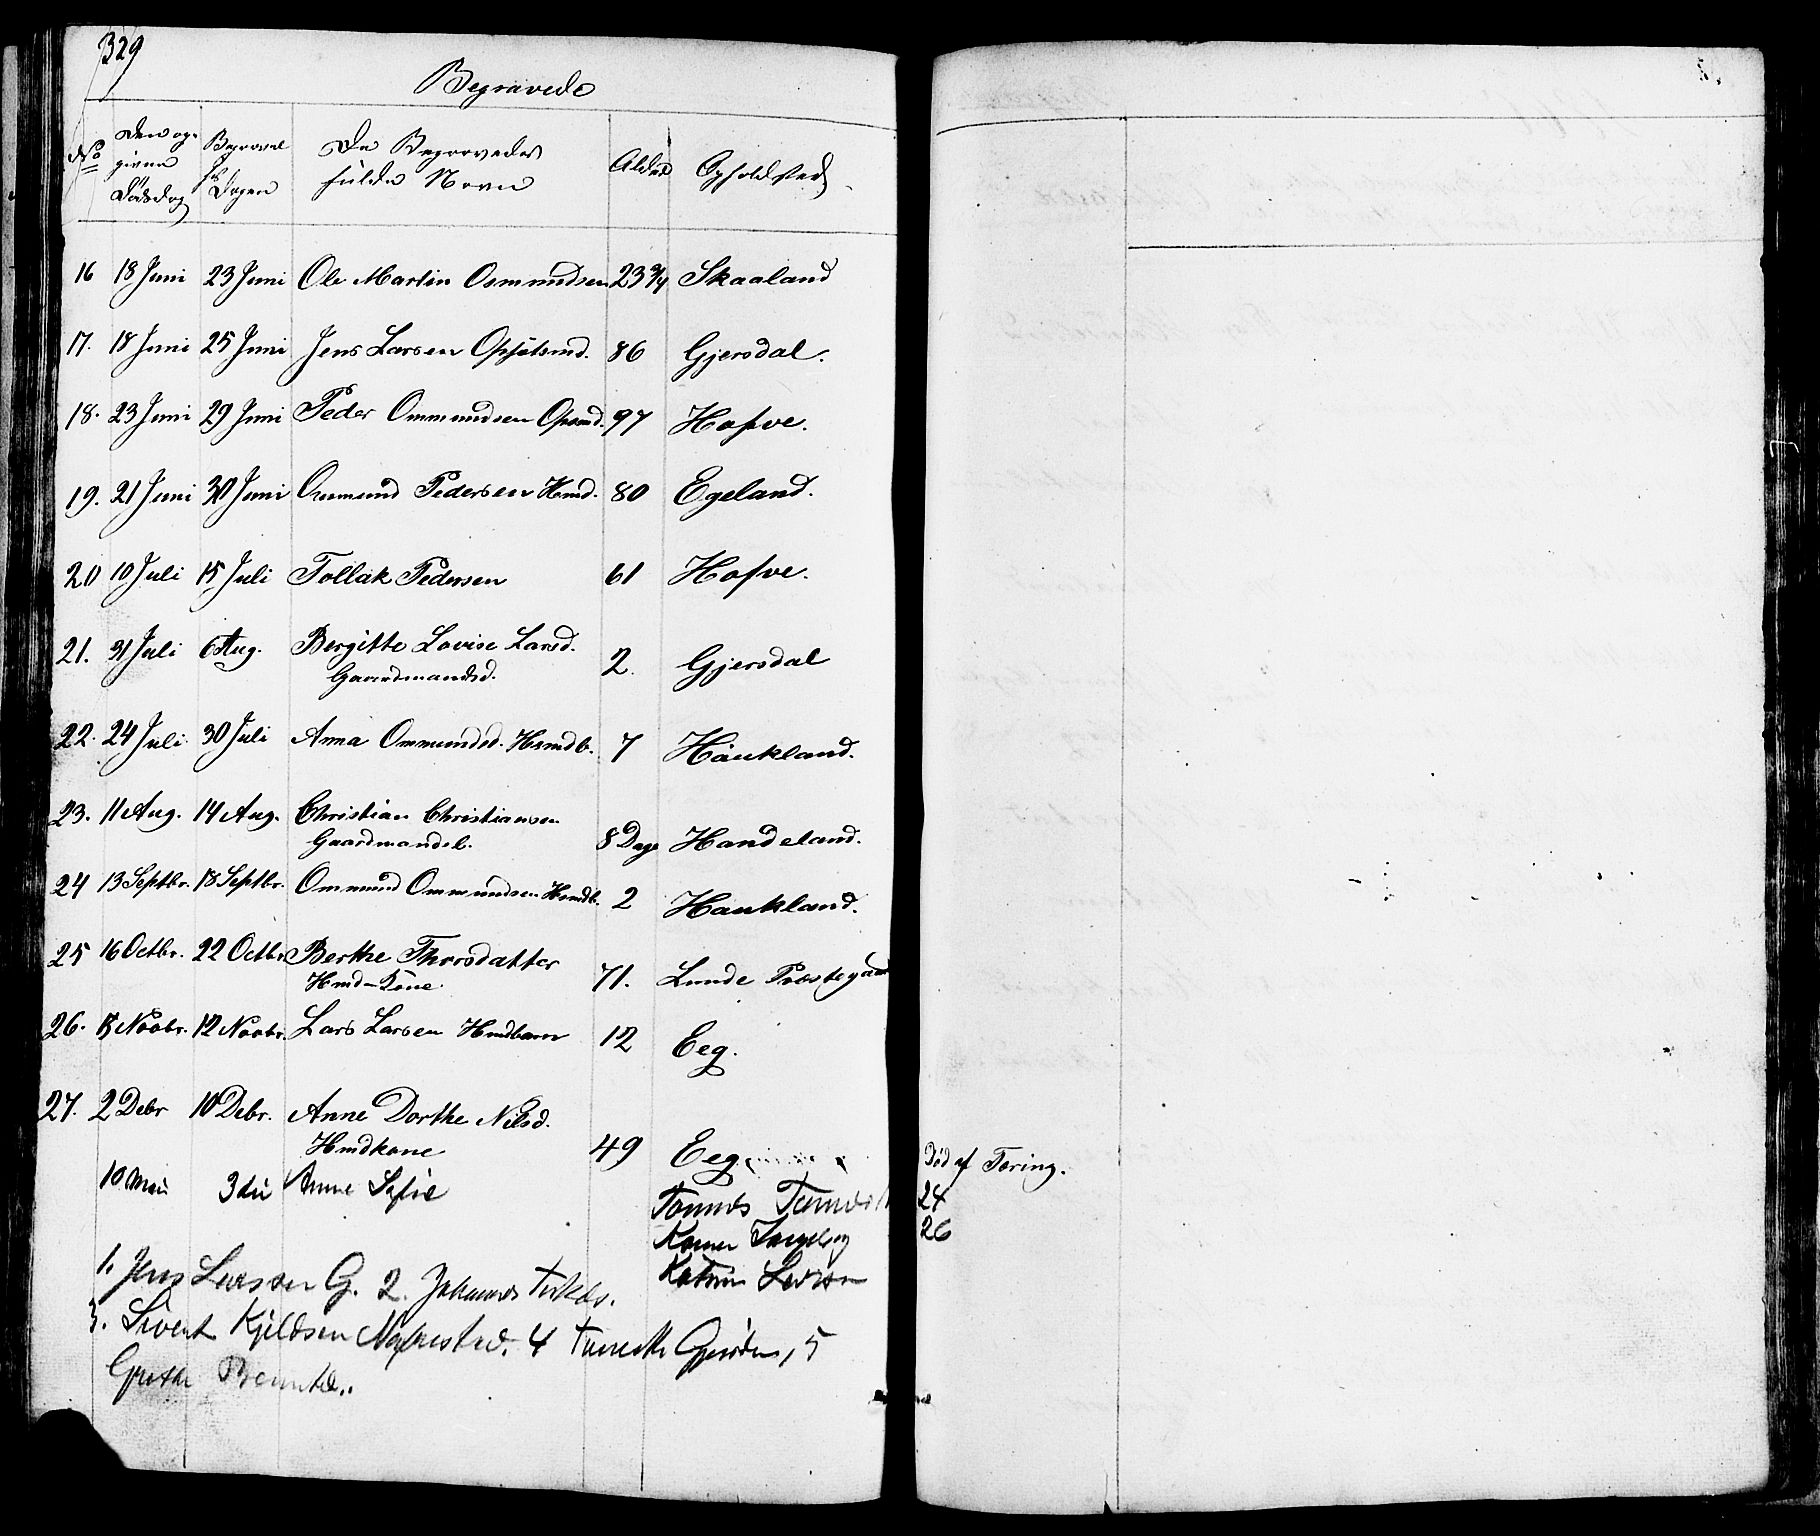 329
Begravede
No Den opgivne Dødsdag Begravelsesdagen De Begravedes fulde Navn Alder Opholdsted
16 18 Juni 23 Juni Ole Martin Osmundsen 23 3/4 Skaaland
17. 18 Juni 25 Juni Jens Larsen 86 Gjersdal.
18. 23 Juni 29 Juni Peder Ommundsen 97 Hofve.
19. 21 Juni 30 Juni Ommund Pedersen Hmd. 80 Egeland.
20 10 Juli 15 Juli Tollak Pedersen 61 Hofve.
21. 31 Juli 6 Aug. Bergitte Lovise Larsd.
Gaardmandsd. 2. Gjersdal
22. 24 Juli 30 Juli Anna Ommundsd. Hsmdb. 7 Haukland.
23. 11 Aug. 14 Aug. Christian Christiansen
Gaardmandsb. 8 Dage Handeland.
24 13 Septbr. 18 Septbr. Ommund Ommundsen Hsmdb. 2 Haukland.
25 16 Octbr. 22 Octbr. Berthe Thorsdatter
Hmd-Kone. 71. Lunde Præstegaard
26. 5 Novbr. 12 Novbr. Lars Larsen Hmdbarn 12 Eeg.
27. 2 Debr 10 Debr. Anne Dorthe Nilsd.
Hmdkone 49 Eeg Død af Tæring.
10 Mai Anne Sofie Tønnes 24
Karen 26
1. Jens Larsen G. 2. Johannes
3. Sivert Kjeldsen 4 5
Grethe